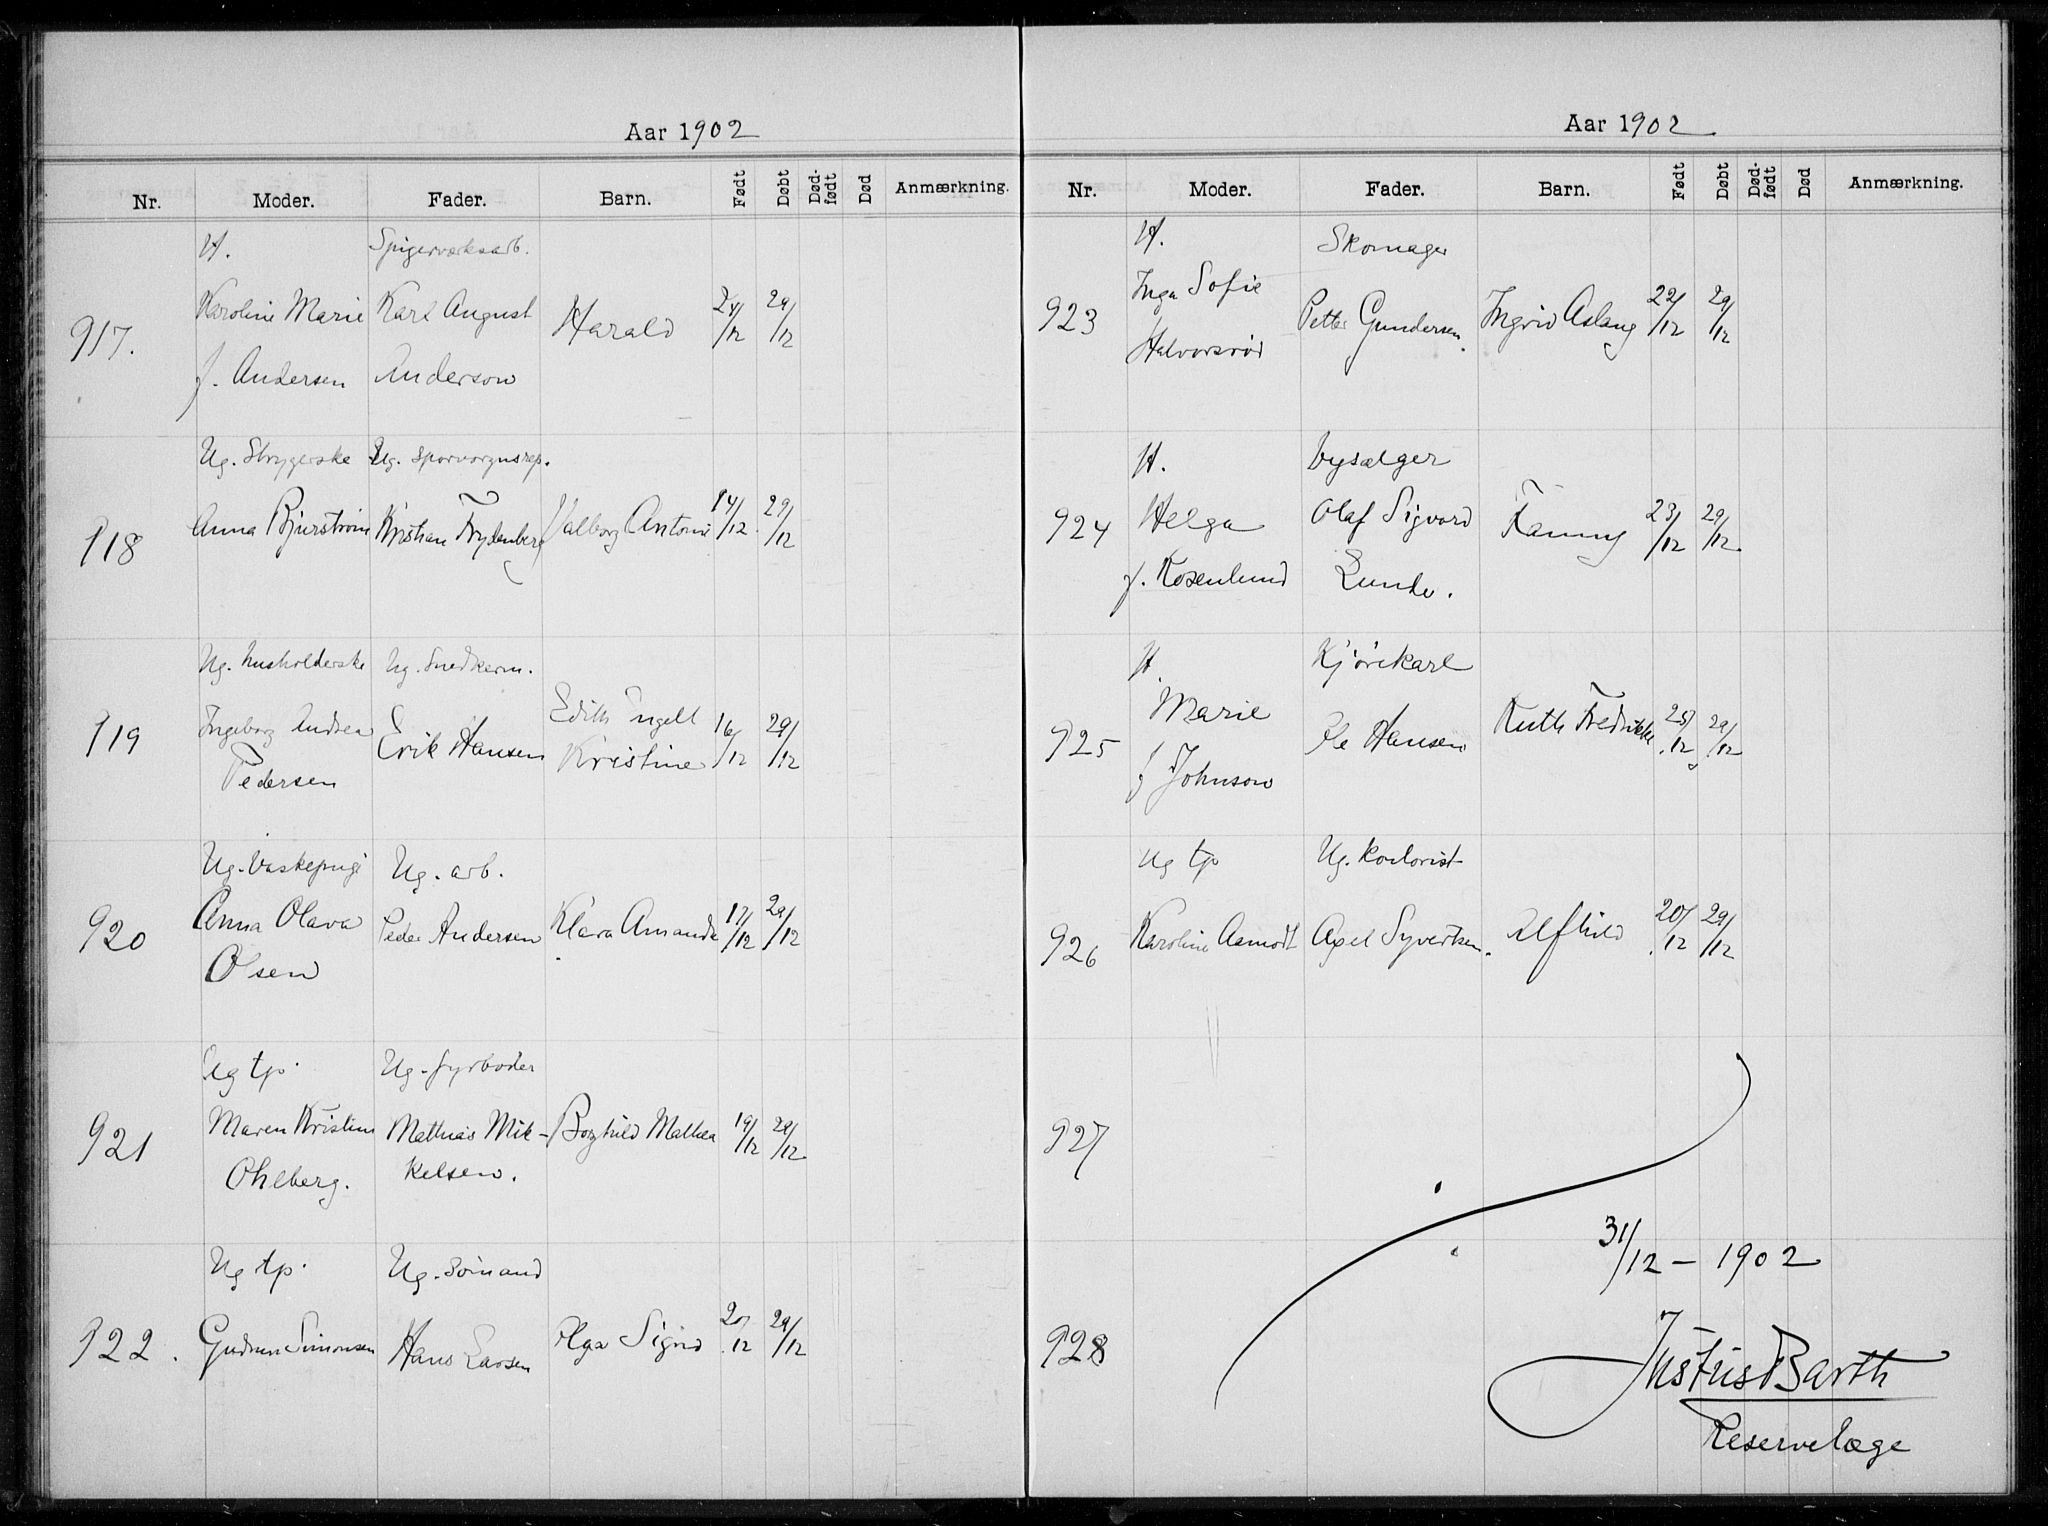 Aar 1902
Nr. Moder. Fader. Barn. Født Døbt Død-født Død Anmærkning.
H. Spigerværksarb.
917. Karoline Marie Karl August Harald 24/12 29/12
f. Andersen Anderson
Ug. Strygerske Ug. sporvognsrep.
918 Anna Bjurstrøm Kristian Frydenberg Valborg Antonie 14/12 29/12
Ug. husholderske Ug. Snedkerm.
919 Ingeborg Andrea Erik Hansen Edith Engell 16/12 29/12
Pedersen Kristine
Ug. Vaskepige Ug. arb.
920 Anna Olava Peder Andersen Klara Amanda 17/12 29/12
Olsen
Ug tp. Ug. fyrbøder
921 Maren Kristine Mathias Mik- Borghild Mathea 19/12 29/12
Ohlberg. kelsen.
Ug tp. Ug. Sømand
922. Gudrun Simonsen Hans Larsen Olga Sigrid 20/12 29/12
Aar 1902
Nr. Moder. Fader. Barn. Født Døbt Død-født Død Anmærkning.
H. Skomager
923 Inga Sofie Petter Gundersen. Ingrid Aslaug 22/12 29/12
Halvorsrød
H. bysælger
924 Helga Olaf Sigvard Fanny 23/12 29/12
f. Rosenlund Lunde.
H. Kjørekarl
925 Marie Ole Hansen Ruth Fredrikke 25/12 29/12
f Johnson
Ug tp Ug. kolorist
926 Karoline Aamodt Axel Syvertsen. Alfhild 20/12 29/12
927
31/12 - 1902
928
Justus Barth
Reservelæge